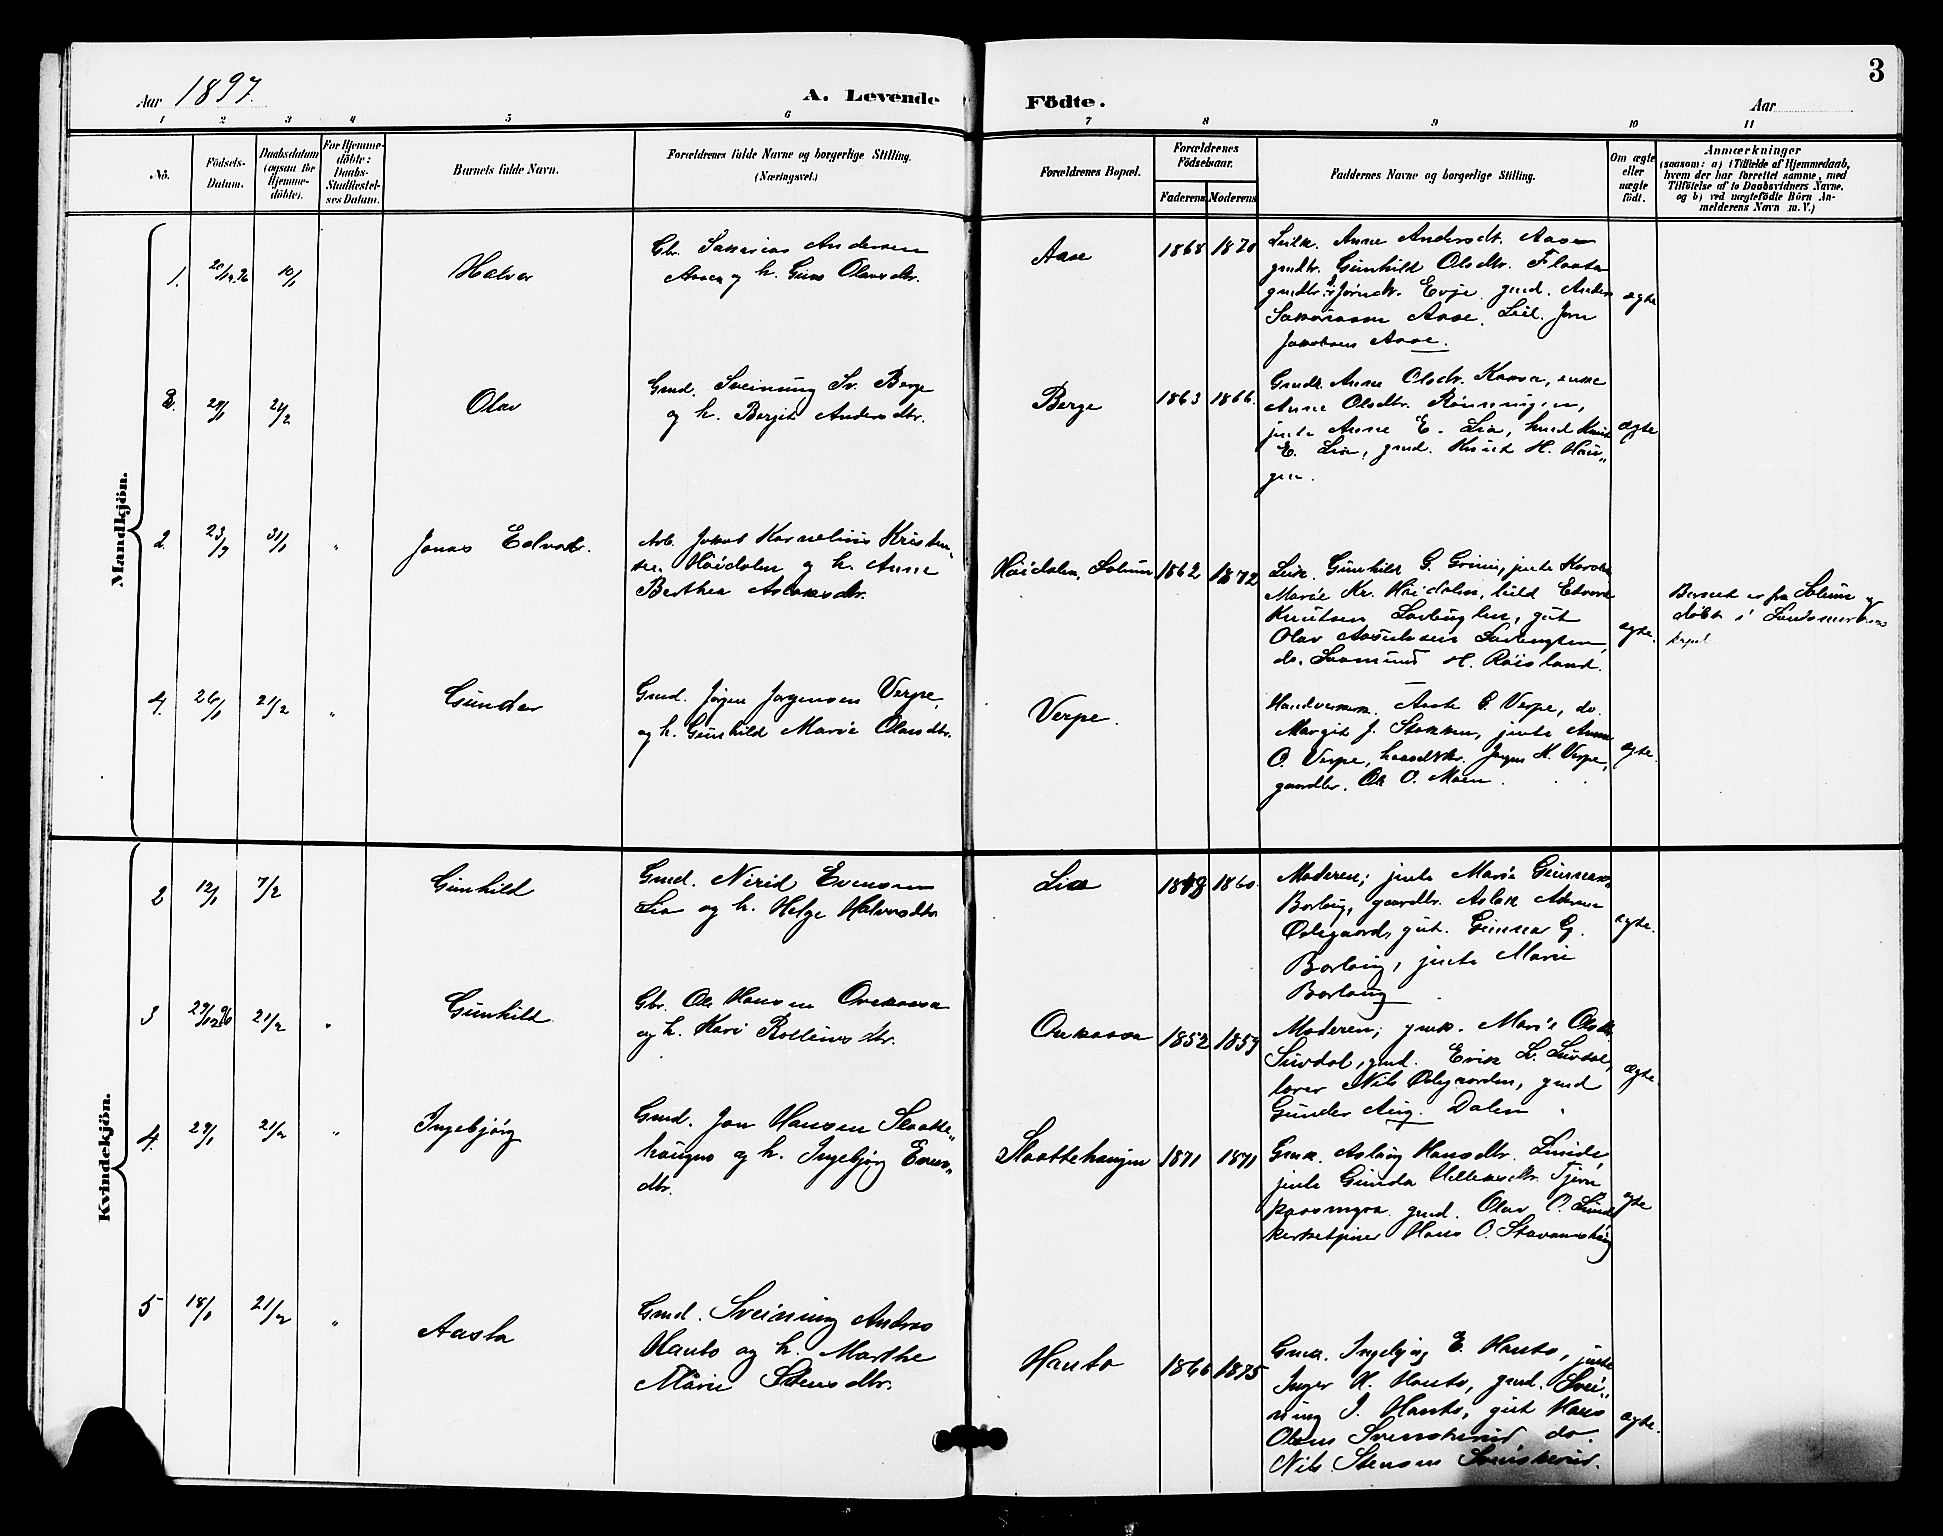 3
Aar 1897.
A. Levende Födte.
Aar
1 2 3 4 5 6 7 8 9 10 11
No.
Födsels-
Datum.
Daabsdatum
(ogsaa for
Hjemme-
döbte).
For Hjemme-
döbte:
Daabs-
Stadfæstel-
ses Datum.
Barnets fulde Navn.
Forældrenes fulde Navne og borgerlige Stilling.
(Næringsvei.)
Forældrenes Bopæl.
Forældrenes
Födselsaar.
Faderens Moderens
Faddernes Navne og borgerlige Stilling.
Om ægte
eller
uægte
födt.
Anmærkninger
(saasom: a) i Tilfælde af Hjemmedaab,
hvem der har forrettet samme, med
Tilföielse af to Daabsvidners Navne,
og b) ved uægtefödte Börn An-
melderens Navn m. V.)
Mandkjön.
1. 20/12 96 10/1
Halvor
Gbr. Sakarias Andersen
Aasen og h. Guro Olavsdtr.
Aase
1868 1870
Leilk. Anne Andersdt. Aase
gmdtr. Gunhild Olsdtr. Flaata
Evje gmd. Anders
Sakariassen Aase, Leil. Jon
Jakobsen Aase.
ægte
2/2
Olav
Gmd. Sveinung Sv. Berge
og h. Bergit Andersdtr.
Berge
1863 1866.
Gmdk. Anne Olsdtr. Kaasa, enke
Anne Olsdtr. Rönningen,
jente Anne E. Lia, Knut
E. Lia, gmd. Knut H. Hau„
gen.
ægte
2. 31/1 „
Jonas Edvard.
Arb. Jakob Kornelius Kristen„
sen Höidalen og h. Anne
Berthea Aslaksdtr.
Höidalen, Solum
1862 1872
Leik. Gunhild G. Grini, jente Karoline
Marie Kr. Höidalen, leild Edvard
Knutsen Louthen, gut
Olav
do. Saamund H. Röisland.
ægte.
Barnet er fra Solum og
döbt i Landsmarkens
kapel.
4. 26/1 21/2 „
Gunder
Gmd. Jörgen Jorgensen Verpe
og h. Gunhild Marie Olavsdtr.
Verpe.
Aaste G. Verpe, do.
Margit J. Stokken, jente Anne
O. Verpe, haandvkr. Jörgen H. Verpe,
gaardbr. Ole O. Moen.
ægte.
Kvindekjön.
2 12/1 7/2
Gunhild
Gmd. Nirid Evensen
Lia og h. Helge Halvorsdtr.
Lia
1860.
Moderen; jente Marie Gunnars.
Borlaug, gaardbr. Aslak
Ödegaard, gut. Gunnar G.
Borlaug, jente Marie
Borlaug
ægte.
3 29/12 96 21/2 „
Gunhild
Gbr. Ole Hansen Ovekaasa
og h. Kari Rolleivsdtr.
Ovekaasa
1852 1859
Moderen; gmk. Marie Olsdtr.
Luvdal, gmd. Erik L. Luvdal,
lærer Nils Ödegaarden, gmd
Gunder Aug. Dalen
ægte.
4. 29/1 21/2 „
Ingebjörg
Gmd. Jon Hansen Slaatte„
haugen og h. Ingebjörg Evens„
dtr.
Slaattehaugen
1871 1871
Gmk. Aslaug Hansdtr. Lunde,
jente Gunda Tjörn
gmd. Olav O. Lunde
kirketjener Hans O. Stavanshaug
ægte
5 18/1 21/2 „
Aasta
Gmd. Sveinung Andreas
Hanto og h. Marthe
Marie Stensdtr.
Hanto
1866 1875
Gmk. Ingebjörg E. Hanto, jente
Inger H. Hanto, gmd. Svei„
nung J. Hanto, gut Hans
Olsen Svenskerud do.
Nils Stensen Svenskerud.
ægte.